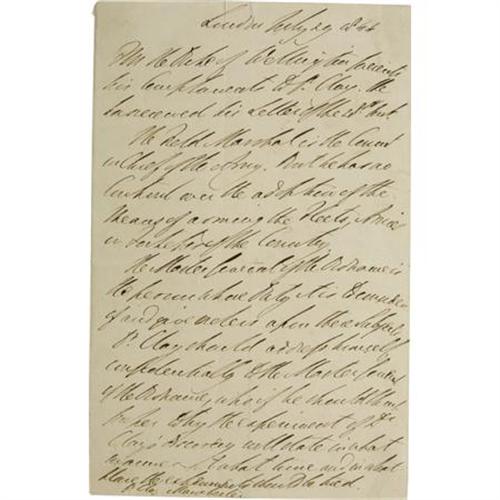 London July 29 1844
F M the Duke of Wellington presents
his Compliments to Dr. Clay. He
has received his Letter of the 28th Inst
The Field Marshal is the Comr
in Chief of the Army. But he has no
Control over the adoption of the
Means of arming the Fleets, Armies
or of the Country
The Master General of the Ordnance is
the person whose Duty it is to consider
of and give orders upon these subjects
Dr. Clay should address himself
confidentially to the Master General
of the Ordnance, who if he should think
proper to try the experiment of Dr
Clay's discovery will state in what
manner at what time and in what
place the experiment
Dr Clay Manchester